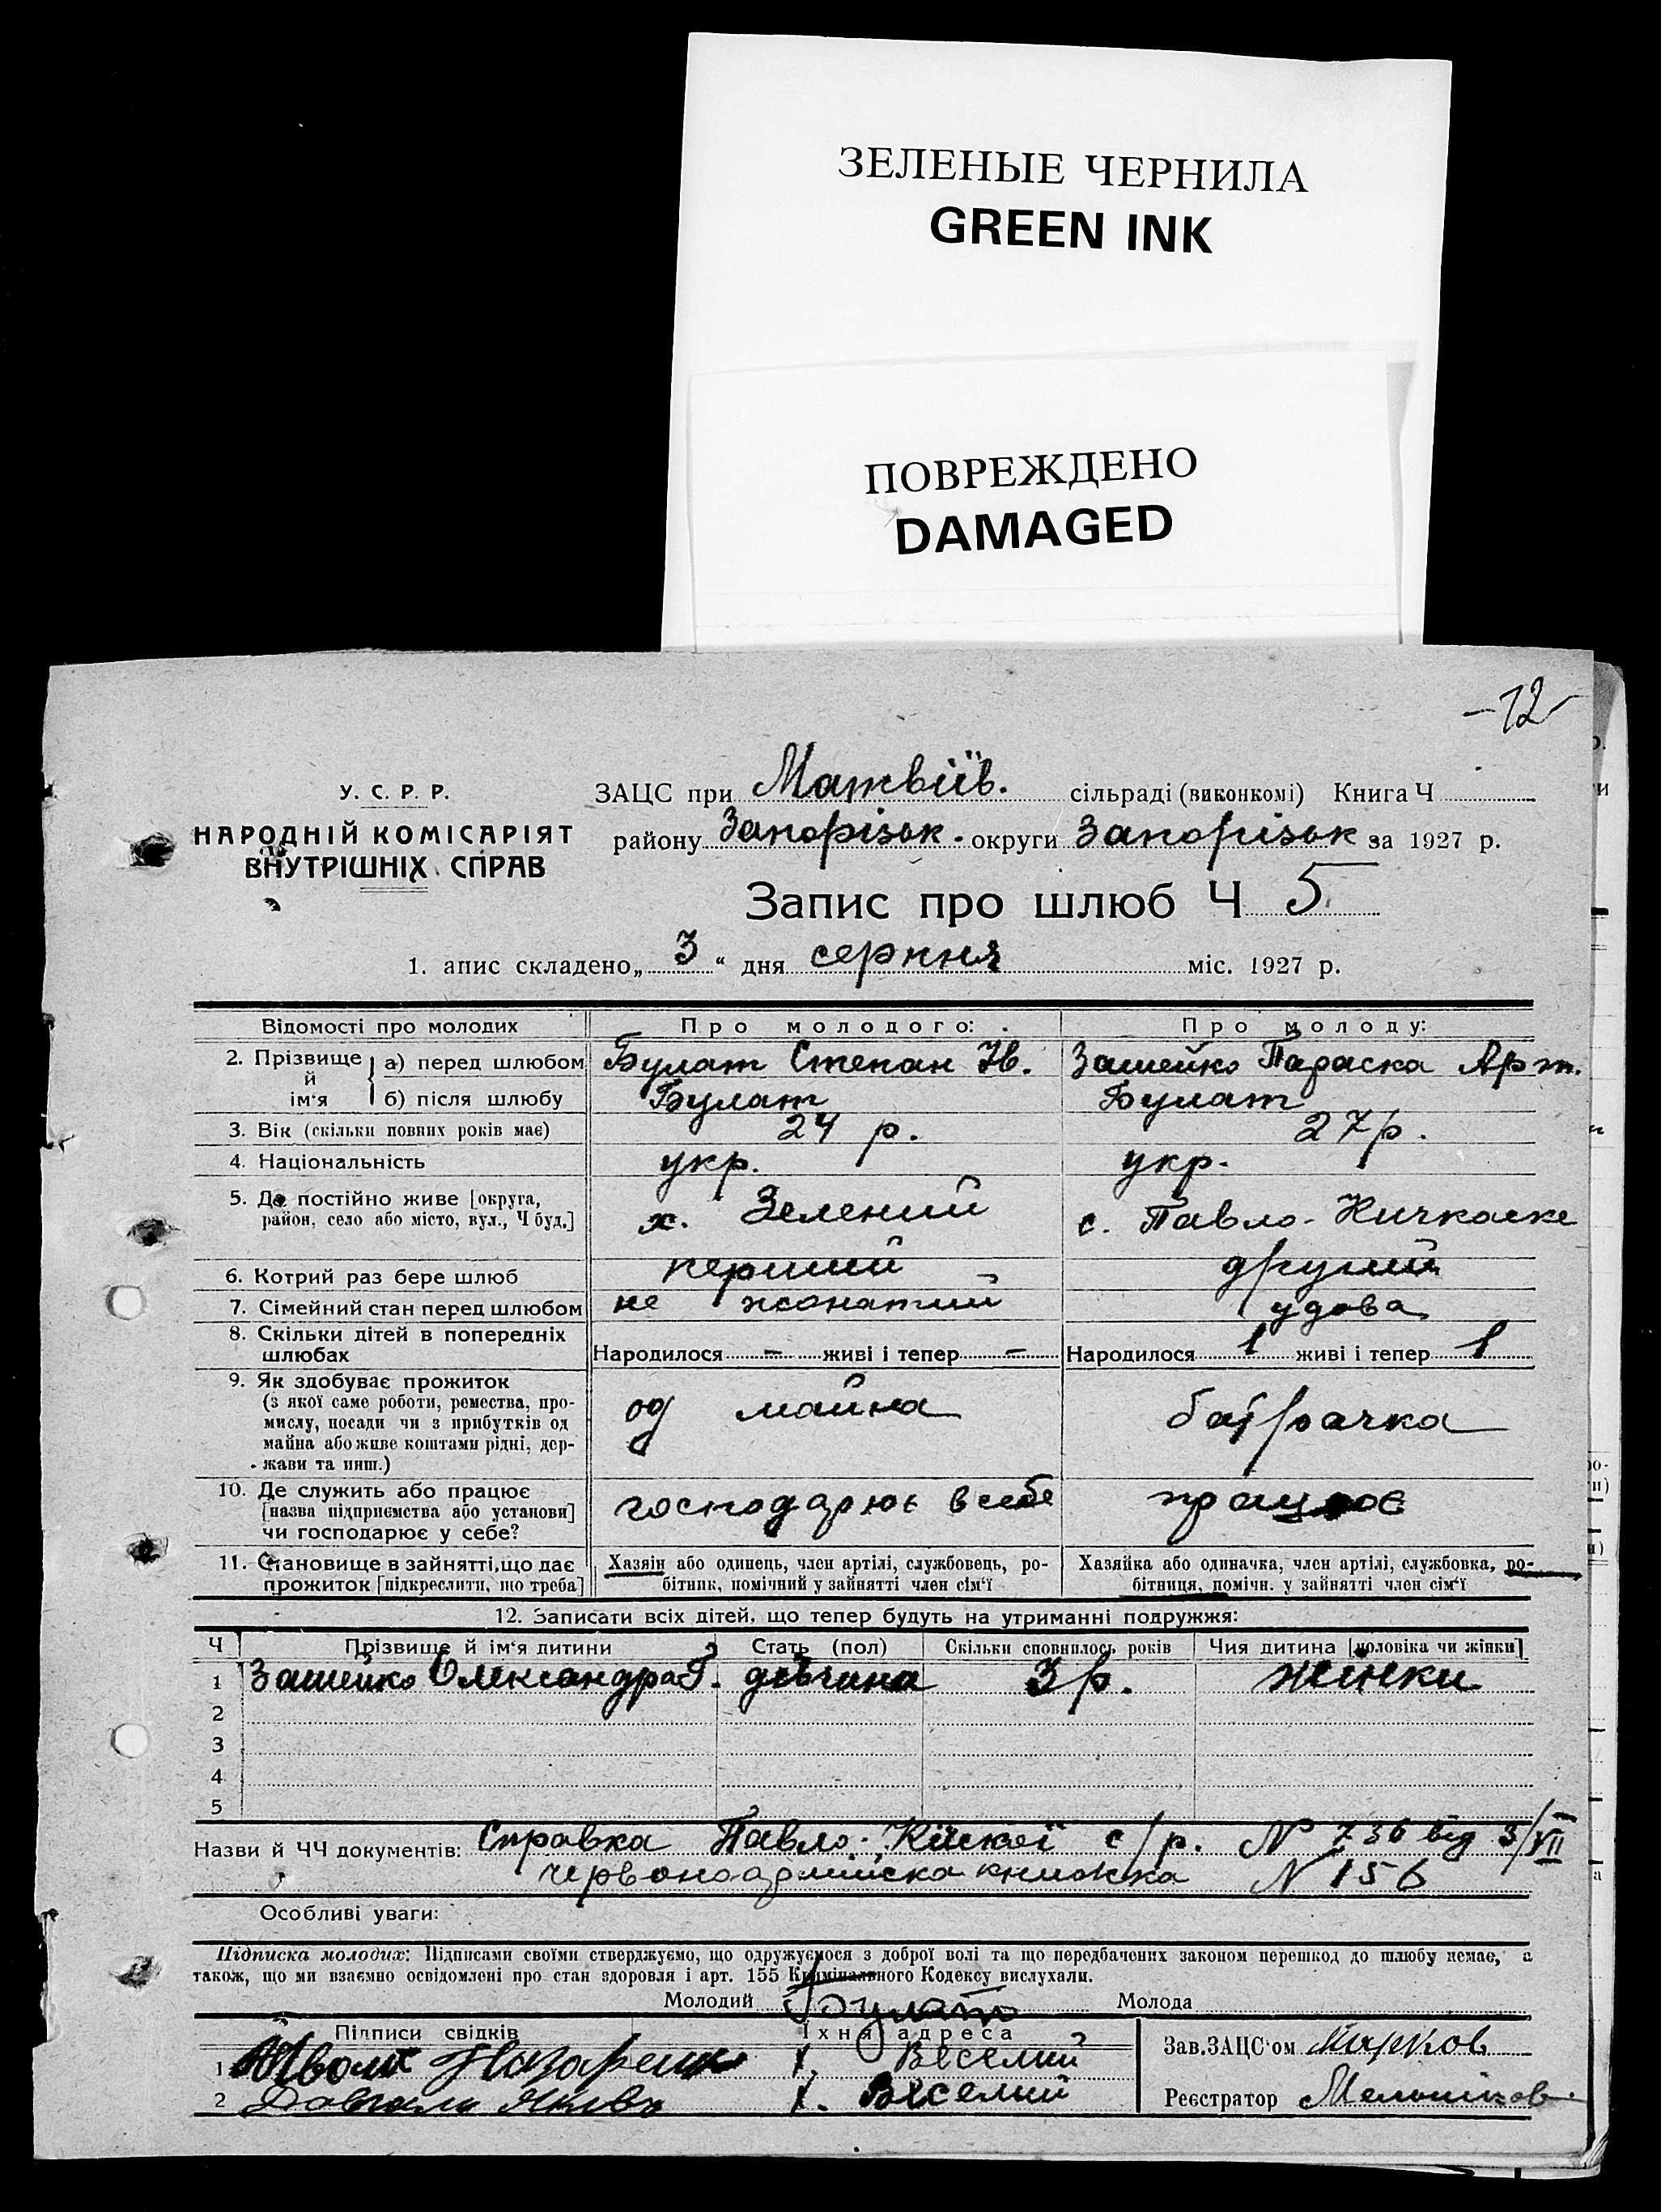 ЗЕЛЕНЫЕ ЧЕРНИЛА
GREEN INK
ПОВРЕЖДЕНО
DAMAGED
-12-
У. С. Р. Р.
НАРОДНІЙ КОМІСАРІЯТ
ВНУТРІШНІХ СПРАВ
ЗАЦС при Матвіїв. сільраді (виконкомі) Книга Ч
району Запорізьк. округи Запорізьк за 1927 р.
Запис про шлюб Ч 5
1. апис складено „ 3 “ дня серпня міс. 1927 р.
Відомості про молодих Про молодого: Про молоду:
2. Прізвище й ім'я а) перед шлюбом Булат Степан Ів. Зашейко Параска Арт.
б) після шлюбу Булат Булат
3. Вік (скільки повних років має) 24 р. 27 р.
4. Національність укр. укр.
5. Де постійно живе [округа, район, село або місто, вул., Ч буд.] х. Зелений с. Павло-Кичкаске
6. Котрий раз бере шлюб перший другий
7. Сімейний стан перед шлюбом не жонатий удова
8. Скільки дітей в попередніх шлюбах Народилося - живі і тепер - Народилося 1 живі і тепер 1
9. Як здобуває прожиток
(з якої саме роботи, ремества, промислу, посади чи з прибутків од майна або живе коштами рідні, держави та инш.) од майна батрачка
10. Де служить або працює
[назва підприємства або установи]
чи господарює у себе? господарює в себе працює
11. Становище в зайнятті, що дає прожиток [підкреслити, що треба] Хазяін або одинець, член артілі, службовець, робітник, помічний у зайнятті член сім'ї Хазяйка або одиначка, член артілі, службовка, робітниця, помічн. у зайнятті член сім'ї
12. Записати всіх дітей, що тепер будуть на утриманні подружжя:
Ч Прізвище й ім'я дитини Стать (пол) Скільки сповнилось років Чия дитина [чоловіка чи жінки]
1 Зашейко Олександра Г. дівчина 3 р. жінки
2
3
4
5
Назви й ЧЧ документів: Справка Павло- с/р. № 736 від 3/VII
червоноармійска книжка № 156
Особливі уваги:
Підписка молодих: Підписами своїми стверджуємо, що одружуємося з доброї волі та що передбачених законом перешкод до шлюбу немає, а
також, що ми взаємно освідомлені про стан здоровля і арт. 155 Кримінального Кодексу вислухали.
Молодий Булат Молода
Підписи свідків Їхня адреса
1 Назаренко х. Веселий
2 Яків х. Веселий
Зав. ЗАЦС'ом Марков
Реєстратор